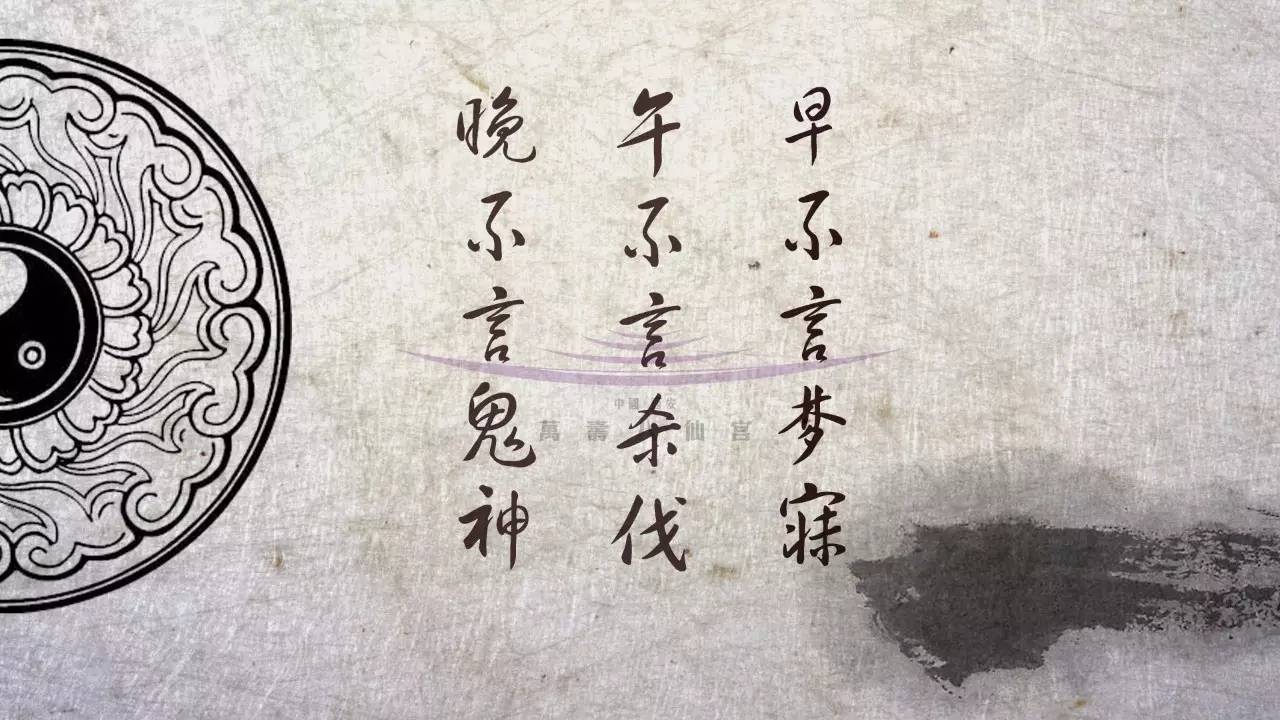 早不言梦寐
午不言杀伐
晚不言鬼神
中國 安
萬壽 仙宫